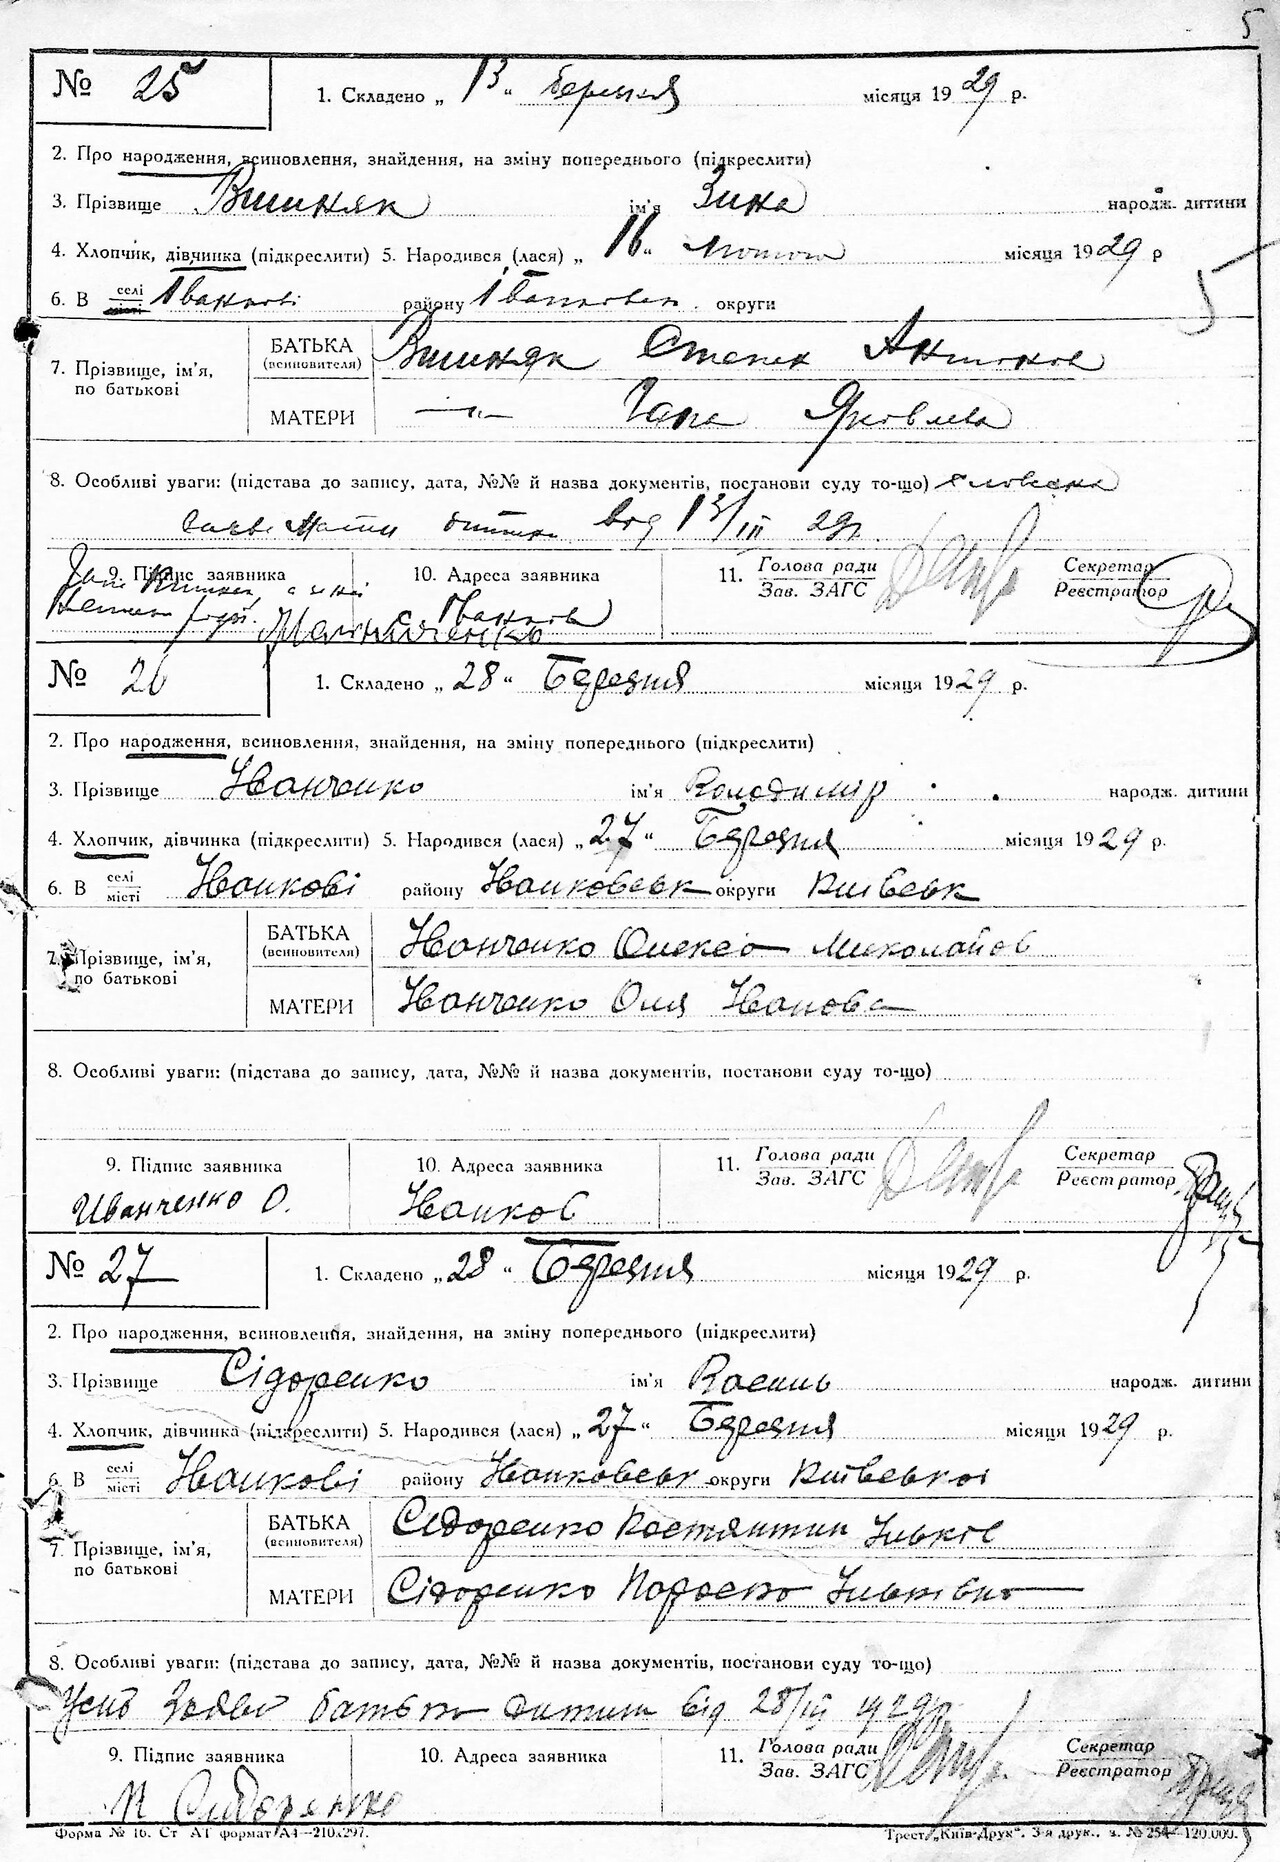 5
№ 25
1. Складено „ 13 “ березня місяця 1929 р.
2. Про народження, всиновлення, знайдення, на зміну попереднього (підкреслити)
3. Прізвище Вишняк ім'я Зина народж. дитини
4. Хлопчик, дівчинка (підкреслити) 5. Народився (лася) „ 16 “ Лютого місяця 1929 р
6. В селі місті Іванкові району Іванковськ. округи
7. Прізвище, ім'я, по батькові
БАТЬКА (всиновителя) Вишняк Степан Антонов
МАТЕРИ —„— Гапа Яковлева
8. Особливі уваги: (підстава до запису, дата, №№ й назва документів, постанови суду то-що) словесна
заява Матери дитини від 13/III 29р.
9. Підпис заявника 10. Адреса заявника 11. Голова ради Зав. ЗАГС Секретар Реєстратор
с. Іванков
№ 26
1. Складено „ 28 “ Березня місяця 1929 р.
2. Про народження, всиновлення, знайдення, на зміну попереднього (підкреслити)
3. Прізвище Іванченко ім'я Володимір народж. дитини
4. Хлопчик, дівчинка (підкреслити) 5. Народився (лася) „ 27 “ Березня місяця 1929 р.
6. В селі місті Іванкові району Іванковськ округи Київськ
7. Прізвище, ім'я, по батькові
БАТЬКА (всиновителя) Іванченко Олекса Миколайов
МАТЕРИ Іванченко Оля Іванова
8. Особливі уваги: (підстава до запису, дата, №№ й назва документів, постанови суду то-що)
9. Підпис заявника 10. Адреса заявника 11. Голова ради Зав. ЗАГС Секретар Реєстратор
Иванченко О. Іванков
№ 27
1. Складено „ 28 “ Березня місяця 1929 р.
2. Про народження, всиновлення, знайдення, на зміну попереднього (підкреслити)
3. Прізвище Сідоренко ім'я Василь народж. дитини
4. Хлопчик, дівчинка (підкреслити) 5. Народився (лася) „ 27 “ Березня місяця 1929 р.
6. В селі місті Іванкові району Іванковськ округи Київської
7. Прізвище, ім'я, по батькові
БАТЬКА (всиновителя) Сідоренко Костянтин Ільків
МАТЕРИ Сідоренко Параска
8. Особливі уваги: (підстава до запису, дата, №№ й назва документів, постанови суду то-що)
Усна Заява батька дитини від 28/III 1929р.
9. Підпис заявника 10. Адреса заявника 11. Голова ради Зав. ЗАГС Секретар Реєстратор
К Сидоренко
Форма № 16. Ст АТ формат А4—210x297.
Трест „Київ-Друк“. 3-я друк., з. № 254—120.000.